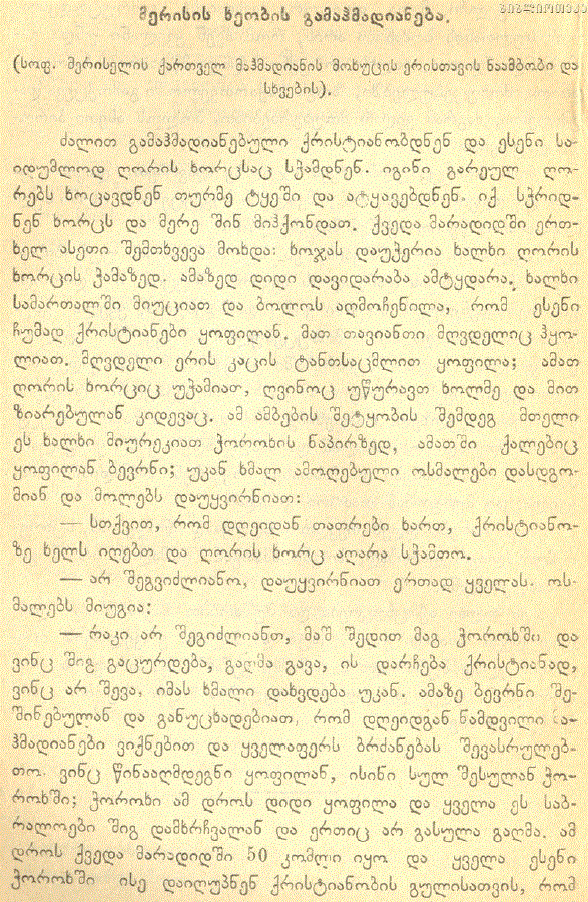 მერისის ხეობის გამაჰმადიანება.
(სოფ. მერისელის ქართველ მაჰმადიანის მოხუცის ერისთავის ნაამბობი და
სხვების).
ძალით გამაჰმადიანებული ქრისტიანობდნენ და ესენი სა-
იდუმლოდ ღორის ხორცსაც სჭამდნენ. იგინი გარეულ ღო-
რებს ხოცავდნენ თურმე ტყეში და ატყავებდნენ. იქ სჭრიდ-
ნენ ხორცს და მერე შინ მიჰქონდათ. ქვედა მარადიდში ერთ-
ხელ ასეთი შემთხვევა მოხდა: ხოჯას დაუჭერია ხალხი ღორის
ხორცის ჭამაზედ. ამაზედ დიდი დავიდარაბა ამტყდარა. ხალხი
სამართალში მიუციათ და ბოლოს აღმოჩენილა, რომ ესენი
ჩუმად ქრისტიანები ყოფილან. მათ თავიანთი მღვდელიც ჰყო-
ლიათ. მღვდელი ერის კაცის ტანთსაცმლით ყოფილა; ამათ
ღორის ხორციც უჭამიათ, ღვინოც უწურავთ ხოლმე და მით
ზიარებულან კიდევაც. ამ ამბების შეტყობის შემდეგ მთელი
ეს ხალხი მიურეკიათ ჭოროხის ნაპირზედ, ამათში ქალებიც
ყოფილან ბევრნი; უკან ხმალ ამოღებული ოსმალები დასდგო-
მიან და მოლებს დაუყვირნიათ:
— სთქვით, რომ დღეიდან თათრები ხართ, ქრისტიანო-
ზე ხელს იღებთ და ღორის ხორც აღარა სჭამთო.
— არ შეგვიძლიანო, დაუყვირნიათ ერთად ყველას. ოს-
მალებს მიუგია:
— რაკი არ შეგიძლიანთ, მაშ შედით მაგ ჭოროხში და
ვინც შიგ გაცურდება, გაღმა გავა, ის დარჩება ქრისტიანად,
ვინც არ შევა, იმას ხმალი დახვდება უკან. ამაზე ბევრნი შე-
შინებულან და განუცხადებიათ, რომ დღეიდგან ნამდვილი მა-
ჰმადიანები ვიქნებით და ყველაფერს ბრძანებას შევასრულებ-
თო. ვინც წინააღმდეგნი ყოფილან, ისინი სულ შესულან ჭო-
როხში; ჭოროხი ამ დროს დიდი ყოფილა და ყველა ეს საბ-
რალოები შიგ დამხრჩვალან და ერთიც არ გასულა გაღმა. ამ
დროს ქვედა მარადიდში 50 კომლი იყო და ყველა ესენი
ჭოროხში ისე დაიღუპნენ ქრისტიანობის გულისათვის, რომ